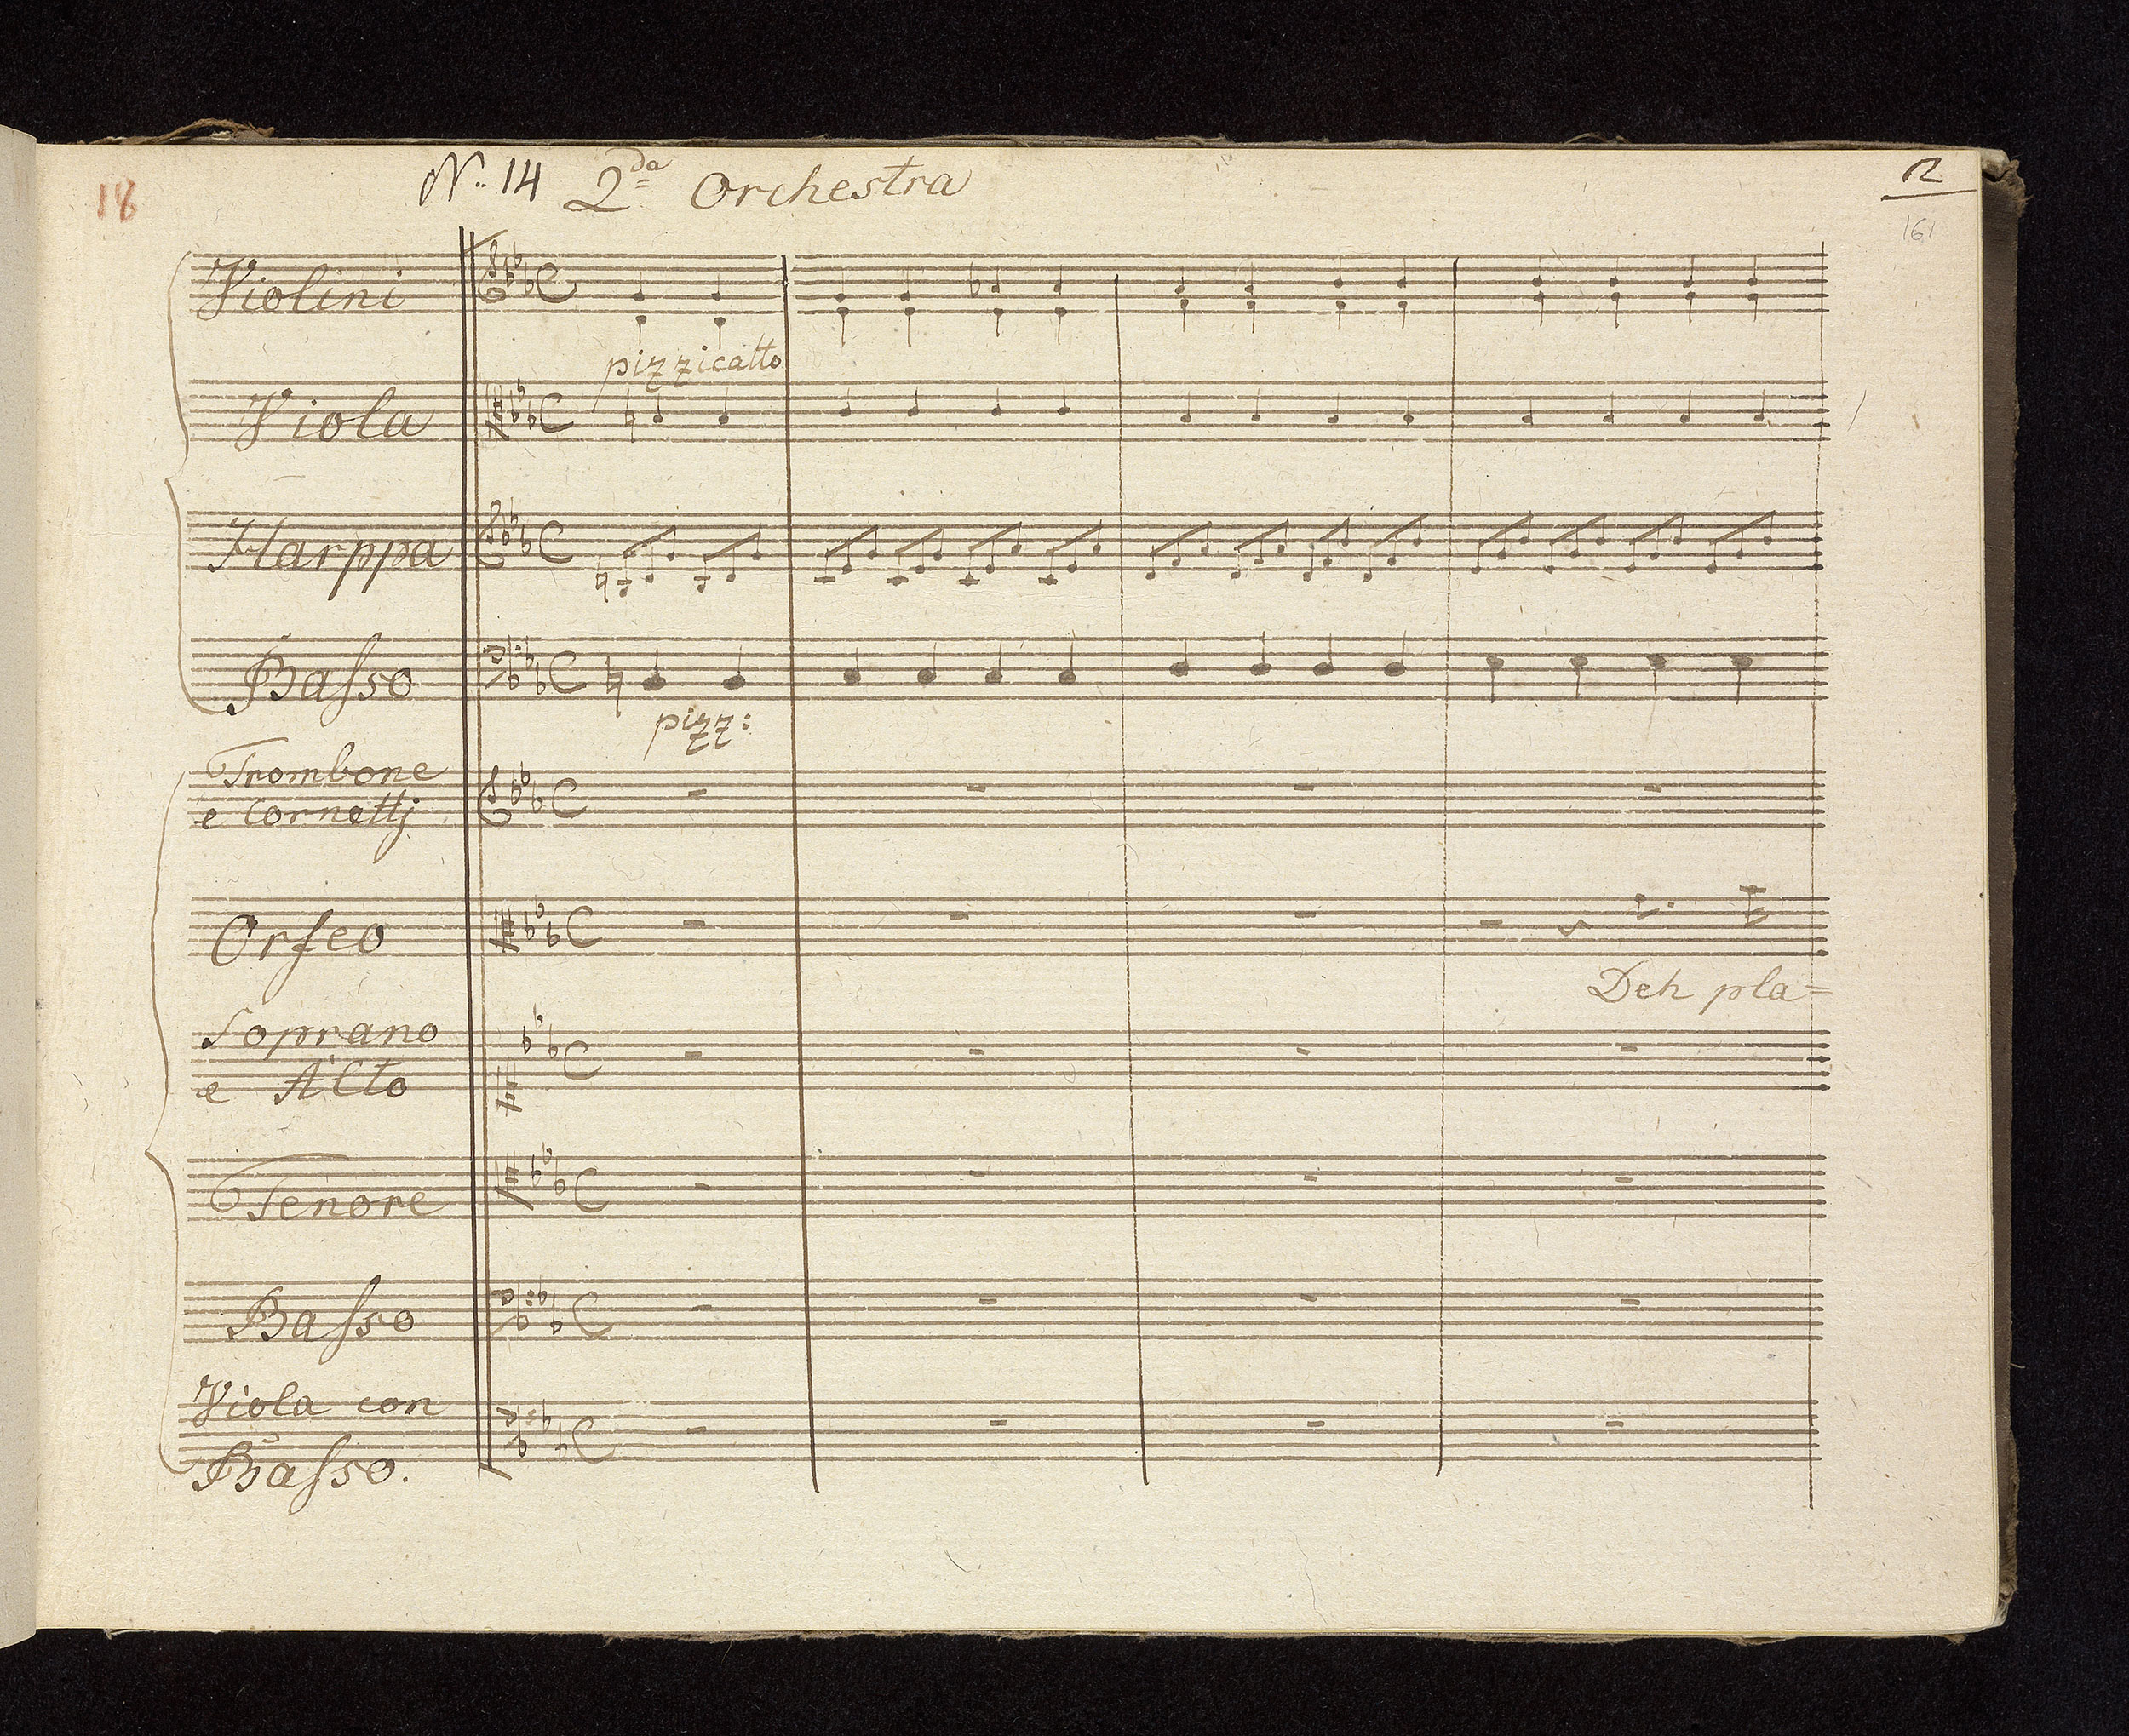 18
N.. 14 2da Orchestra
12
161
Violini
pizzicatto
Viola
Harppa
Basso
pizz:
Trombone
e Cornettj
Orfeo
Deh pla=
Soprano
e Alto
Tenore
Basso
Viola con
Basso.